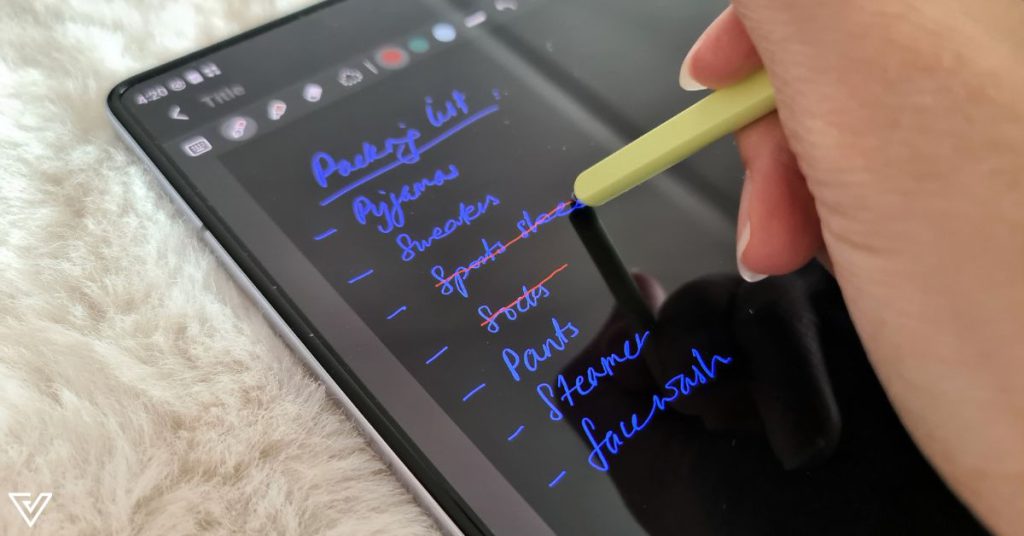 4:26
Title
Packing list :
- Pyjamas
- Sweaters
- Sports shoes
- Socks
- Pants
- Steamer
- facewash